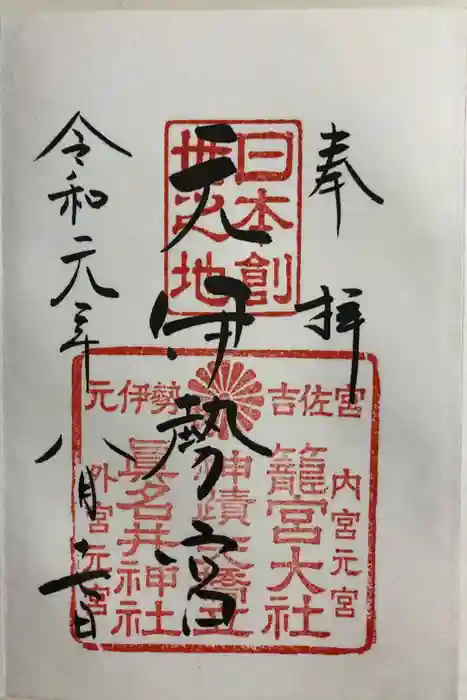 奉拝
日本創
世之地
元伊勢宮
吉佐宮
元伊勢
内宮元宮
籠宮大社
神蹟天橋立
眞名井神社
外宮元宮
令和元年八月十二日